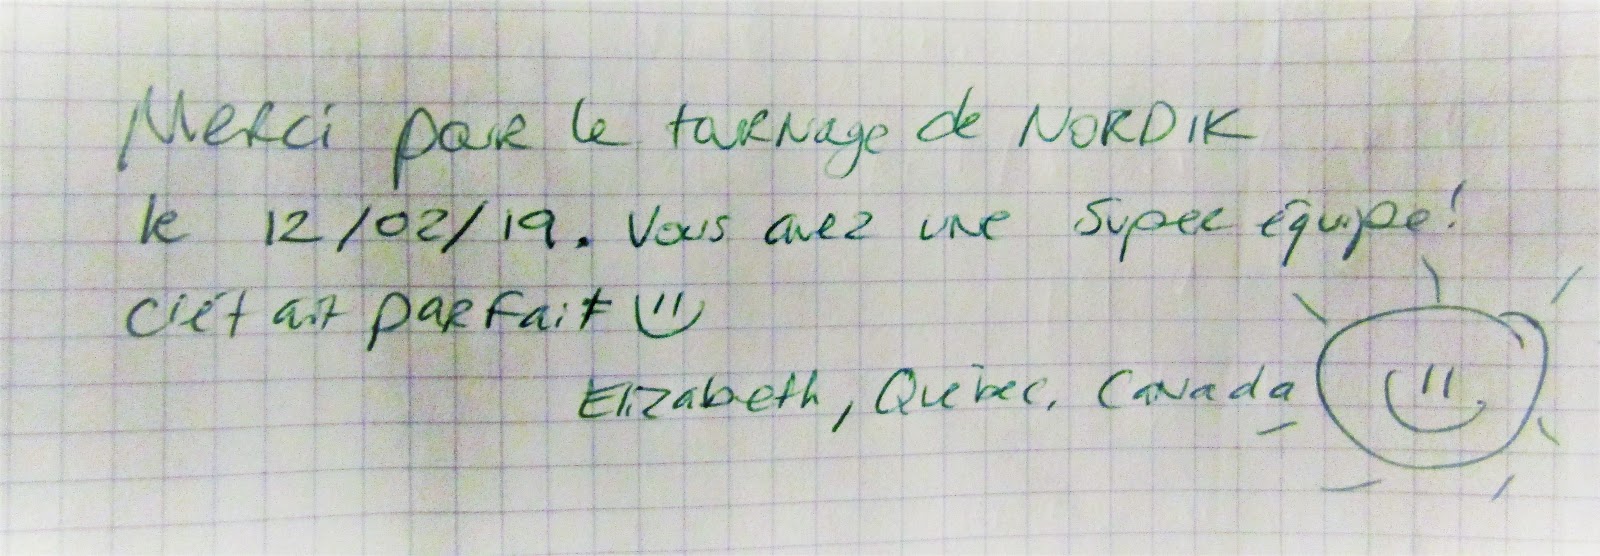 Merci pour le tournage de NORDIK
le 12/02/19. Vous avez une super équipe!
c'était parfait
Elizabeth, Québec, Canada